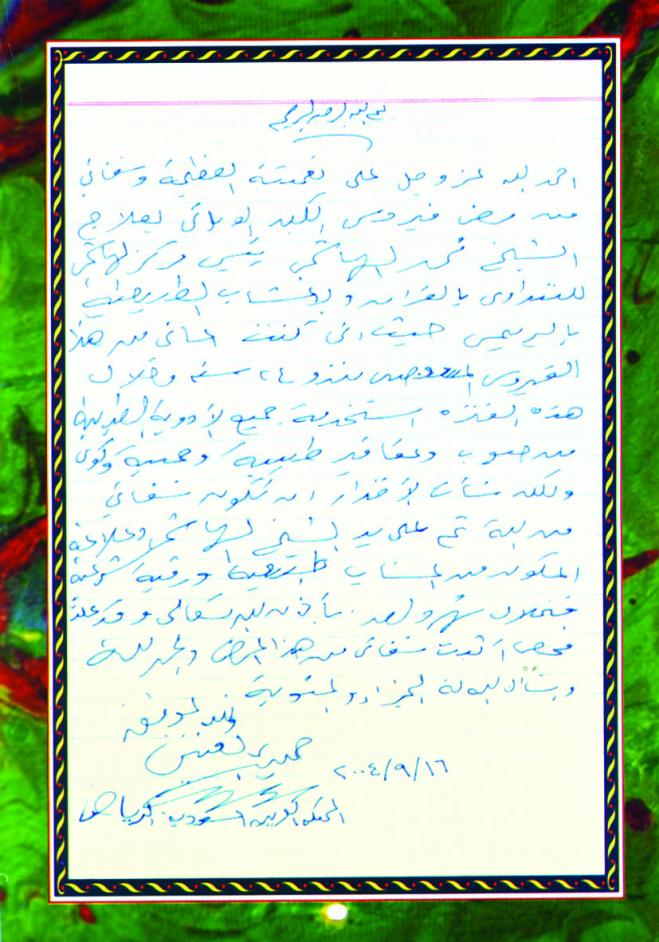 بسم الله الرحمن الرحيم
احمد لله عز وجل على نعمته العظيمة وشفائي
من مرض فيروس الكبد الوبائي بعلاج
الشيخ محمد الهاشمي رئيس مركز الهاشمي
للتداوى بالقران والاعشاب الطبيعية
حيث انى كنت اعانى من هذا
الفيروس منذو ٢٤ سنه وخلال
هذه الفتره استخدمة جميع الأدوية الطبية
من حبوب وعقاقير طبيية وحمية وكوى
ولكن شأت الأقدار ان تكون شفائي
من الله ثم على يد الشيخ الهاشمي وعلاجة
المكون من اعشاب طبيعية ورقية شرعية
فخلال شهر واحد بأذن الله تعالى وقد عملة
فحص أثبت شفائي من هذا المرض والحمد لله
ونسأل الله له الجزاء والمثوبة
والله الموفق
٢٠٠٤/٩/١٦
المملكه العربيه السعوديه الرياض